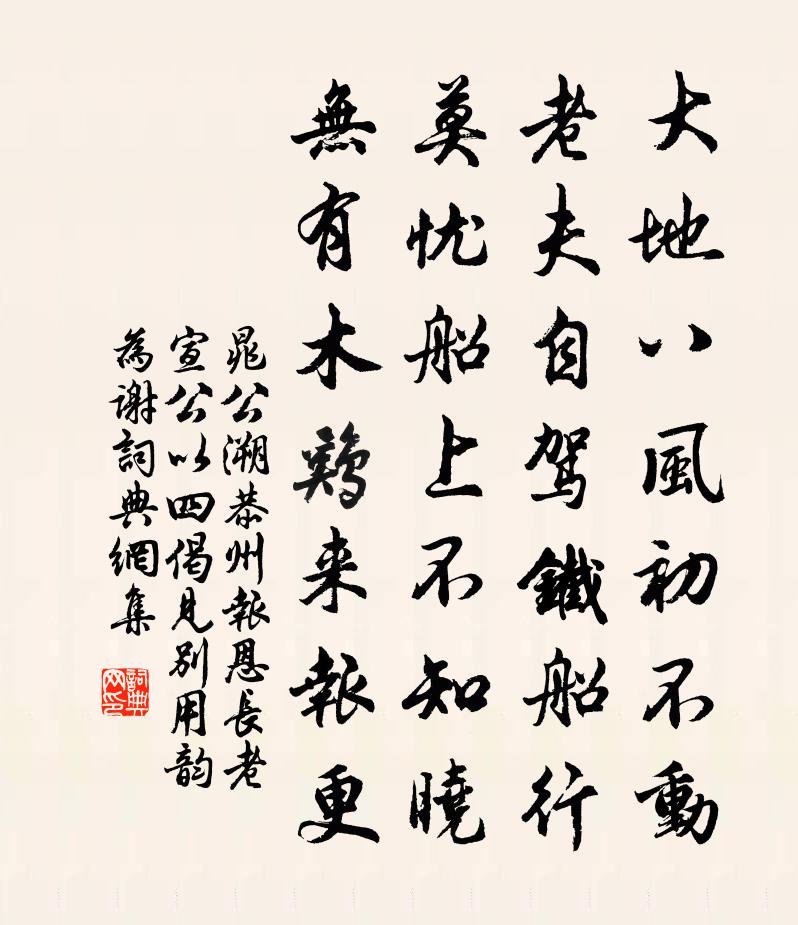 大地八風初不動
老夫自駕鐵船行
莫忧船上不知曉
無有木鷄来報更
晁公溯恭州報恩長老
宣公以四偈見別用韵
為謝詞典網集
詞典网印